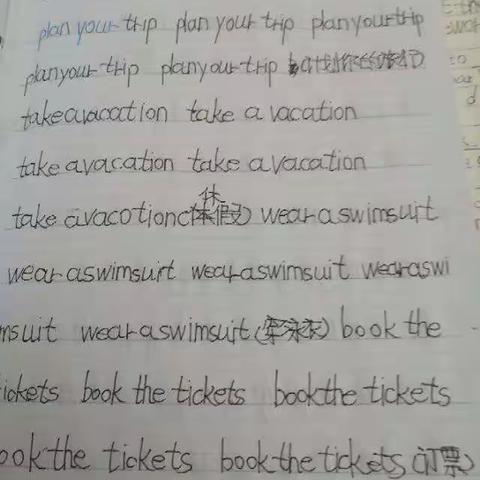 plan your trip plan your trip plan your trip
plan your trip plan your trip (计划你的旅行)
take a vacation take a vacation
take a vacation take a vacation
take a vacation (休假) wear a swimsuit
wear a swimsuit wear a swimsuit wear a swi
msuit wear a swimsuit (穿泳衣) book the
ickets book the tickets book the tickets
ook the tickets book the tickets (订票)